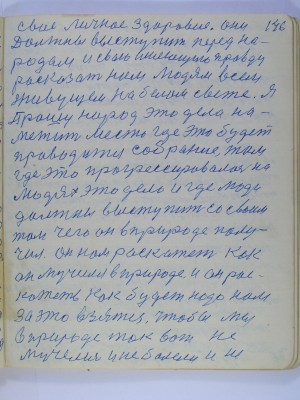 146
свое личное здоровие. они
должны выступить перед на-
родом и свою имеющую правду
расказать нам людям всем
живущем на белом свете. Я
прошу народ это дела на-
метить место где это будет
проводитца собрание, там
где это прогрессировалось на
людях это дело и где люди
должны выступить со своим
там чего он в природе полу-
чил. он нам раскажет как
он мучился в природе и он рас-
кажеть как будет надо нам
за это взятца. чтобы мы
в природе так вот не
мучелись и не болели и ни